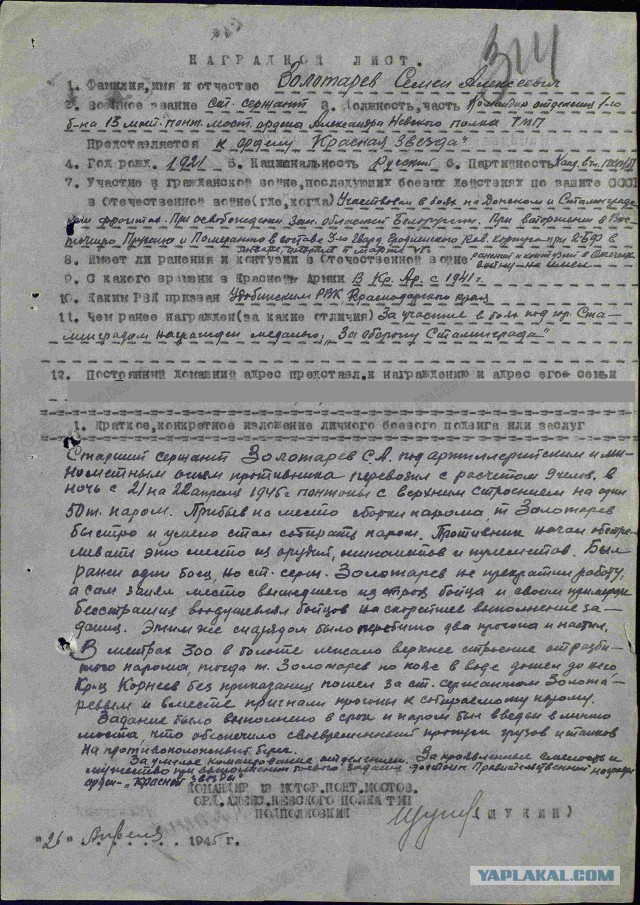 314
НАГРАДНОЙ ЛИСТ.
1. Фамилия, имя и отчество Золотарев Семен Алексеевич
2. Военное звание Ст. сержант 3. Должность, часть Командир отделения 1-го
б-на 13 мот. понт. мост. ордена Александра Невского полка РМП
Представляется к ордену "Красная Звезда"
4. Год рожд. 1921 5. Национальность Русский 6. Партийность Канд. ВКП(б)
7. Участие в гражданской войне, последующих боевых действиях по защите СССР
в Отечественной войне (где, когда) Участвовал в боях на Донском и Сталинградс
ком фронтах. При освобождении Зап. областей Белоруссии. При вторжении в Вос
точную Пруссию и Померанию в составе 3-го Гвард. Гродненского Кав. корпуса при 2БФ в
8. Имеет ли ранения и контузии в Отечественной войне ранений и контузий в Отечеств.
войну не имеет
9. С какого времени в Красной Армии В Кр. Ар. с 1941 г.
10. Каким РВК призван Удобинским РВК Краснодарского края
11. Чем ранее награжден (за какие отличия) За участие в боях под гор. Ста-
линградом награжден медалью "За оборону Сталинграда"
12. Постоянный домашний адрес представл. к награждению и адрес его семьи
1. Краткое, конкретное изложение личного боевого подвига или заслуг
Старший сержант Золотарев С.А. под артиллерийским и ми-
нометным огнем противника перевозил с расчетом 9 челов. в
ночь с 21 на 22 апреля 1945 г понтоны с верхним строением на один
50 т. паром. Прибыв на место сборки парома, т. Золотарев
быстро и умело стал собирать паром. Противник начал обстре-
ливать это место из орудий, минометов и пулеметов. Был
ранен один боец, но ст. серж. Золотарев не прекратил работу,
а сам занял место вышедшего из строя бойца и своим примером
бесстрашия воодушевлял бойцов на скорейшее выполнение за-
дания. Этим же снарядом было перебито два прогона и настил.
В метрах 300 в болоте лежало верхнее строение от разби-
того парома, тогда т. Золотарев по пояс в воде дошел до него
Кр-ц Корнеев без приказания пошел за ст. сержантом Золота-
ревым и вместе пригнали прогоны к собираемому парому.
Задание было выполнено в срок и паром был введен в линию
моста, что обеспечило своевременный пропуск грузов и танков
на противоположный берег.
За умелое командование отделением. За проявленные смелость и
мужество при выполнении боевого задания достоин Правительственной награды
орден "Красной Звезды"
КОМАНДИР 13 МОТОР. ПОНТ. МОСТОВ.
ОРД. АЛЕКС. НЕВСКОГО ПОЛКА РМП
ПОДПОЛКОВНИК (ЩУКИН)
"26" Апреля 1945 г.
YAPLAKAL.COM